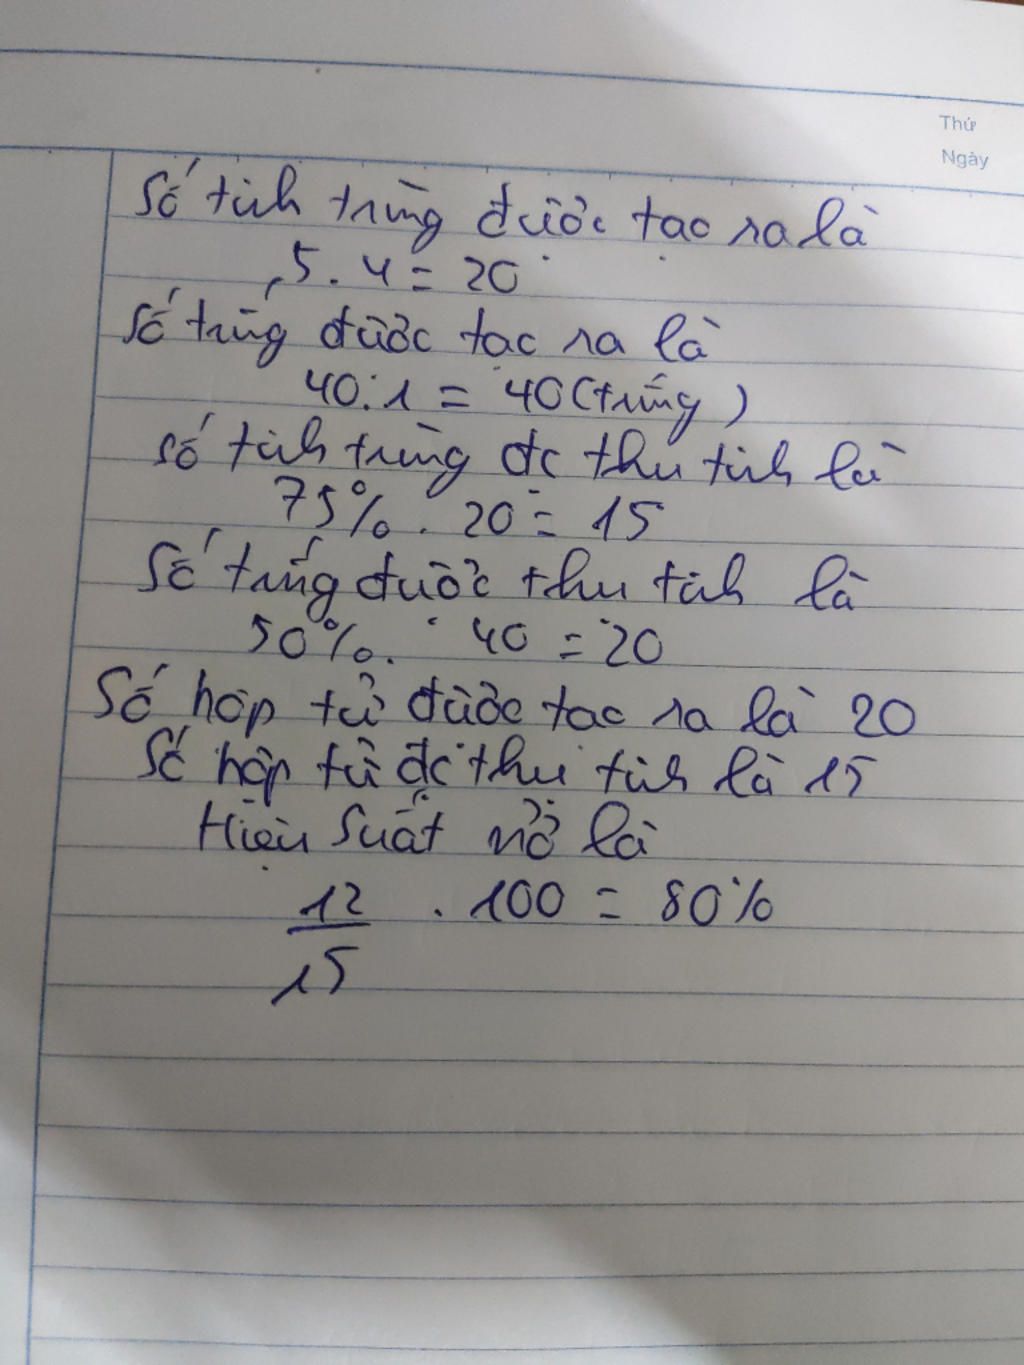 Thứ
Ngày
Số tinh trùng được tạo ra là
5 . 4 = 20
Số trứng được tạo ra là
40 . 1 = 40 (trứng)
Số tinh trùng đc thụ tinh là
75% . 20 = 15
Số trứng được thụ tinh là
50% . 40 = 20
Số hợp tử được tạo ra là 20
Số hợp tử đc thụ tinh là 15
Hiệu suất nở là
12/15 . 100 = 80%